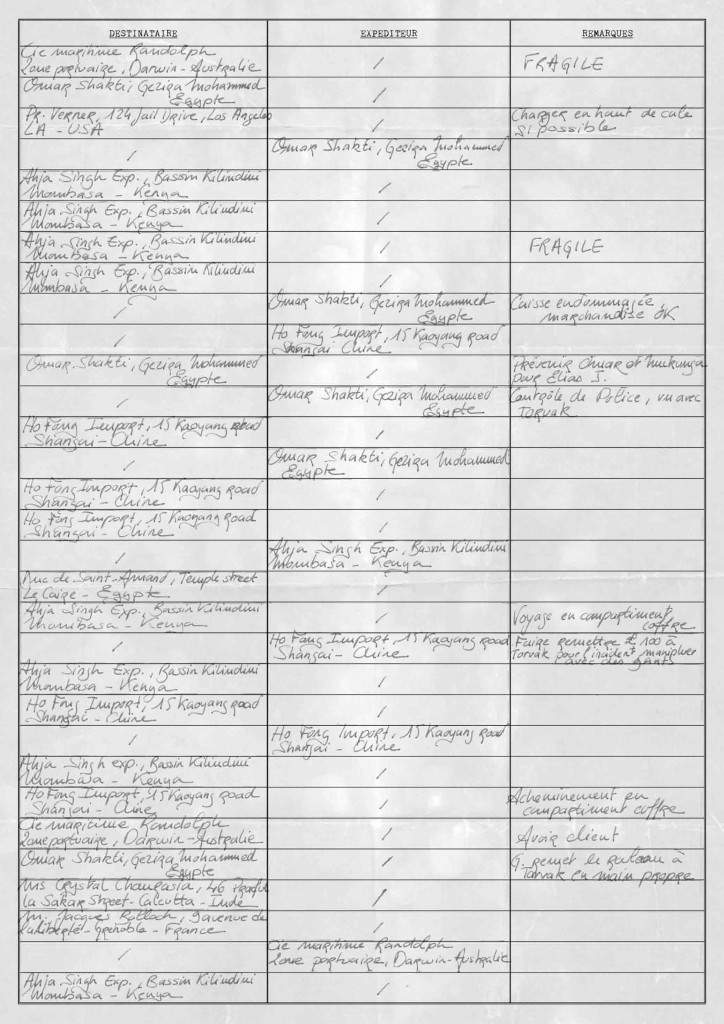 DESTINATAIRE EXPEDITEUR REMARQUES
Cie maritime Randolph
Zone portuaire, Darwin - Australie / FRAGILE
Omar Shakti, Gezira Mohammed
Egypte /
Pr. Verner, 124 Jail Drive, Los Angeles Charger en haut de cale
LA - USA / si possible
/ Omar Shakti, Gezira Mohammed
Egypte
Ahja Singh Exp., Bassin Kilindini
Mombasa - Kenya /
Ahja Singh Exp., Bassin Kilindini
Mombasa - Kenya /
Ahja Singh Exp., Bassin Kilindini
Mombasa - Kenya / FRAGILE
Ahja Singh Exp., Bassin Kilindini
Mombasa - Kenya /
/ Omar Shakti, Gezira Mohammed Caisse endommagée,
Egypte marchandise OK
/ Ho Fong Import, 15 Kaoyang road
Shangai Chine
Omar Shakti, Gezira Mohammed Prévenir Omar et Mukunga
Egypte / pour Elias J.
/ Omar Shakti, Gezira Mohammed Contrôle de Police, vu avec
Egypte Torvak
Ho Fong Import, 15 Kaoyang road
Shangai - Chine /
/ Omar Shakti, Gezira Mohammed
Egypte
Ho Fong Import, 15 Kaoyang road
Shangai - Chine /
Ho Fong Import, 15 Kaoyang road
Shangai - Chine /
/ Ahja Singh Exp., Bassin Kilindini
Mombasa - Kenya
Duc de Saint-Armand, Temple street
Le Caire - Egypte /
Ahja Singh Exp., Bassin Kilindini Voyage en compartiment
Mombasa - Kenya / coffre
/ Ho Fong Import, 15 Kaoyang Road Faire remettre £ 100 à
Shangai - Chine Torvak pour l'incident, manipuler
avec des gants
Ahja Singh Exp., Bassin Kilindini
Mombasa - Kenya /
Ho Fong Import, 15 Kaoyang road
Shangai - Chine /
/ Ho Fong Import, 15 Kaoyang Road
Shangai - Chine
Ahja Singh exp., Bassin Kilindini
Mombasa - Kenya /
Ho Fong Import, 15 Kaoyang Road Acheminement en
Shangai - Chine / compartiment coffre
Cie maritime Randolph
Zone portuaire, Darwin - Australie / Avoir client
Omar Shakti, Gezira Mohammed G. remet le rouleau à
Egypte / Torvak en main propre
Mrs Crystal Chaurasia, 46
la Sakar Street - Calcutta - Inde /
M. Jacques Rolloch, 9 avenue de
la liberté - Grenoble - France /
/ Cie maritime Randolph
Zone portuaire, Darwin - Australie
Ahja Singh Exp., Bassin Kilindini
Mombasa - Kenya /